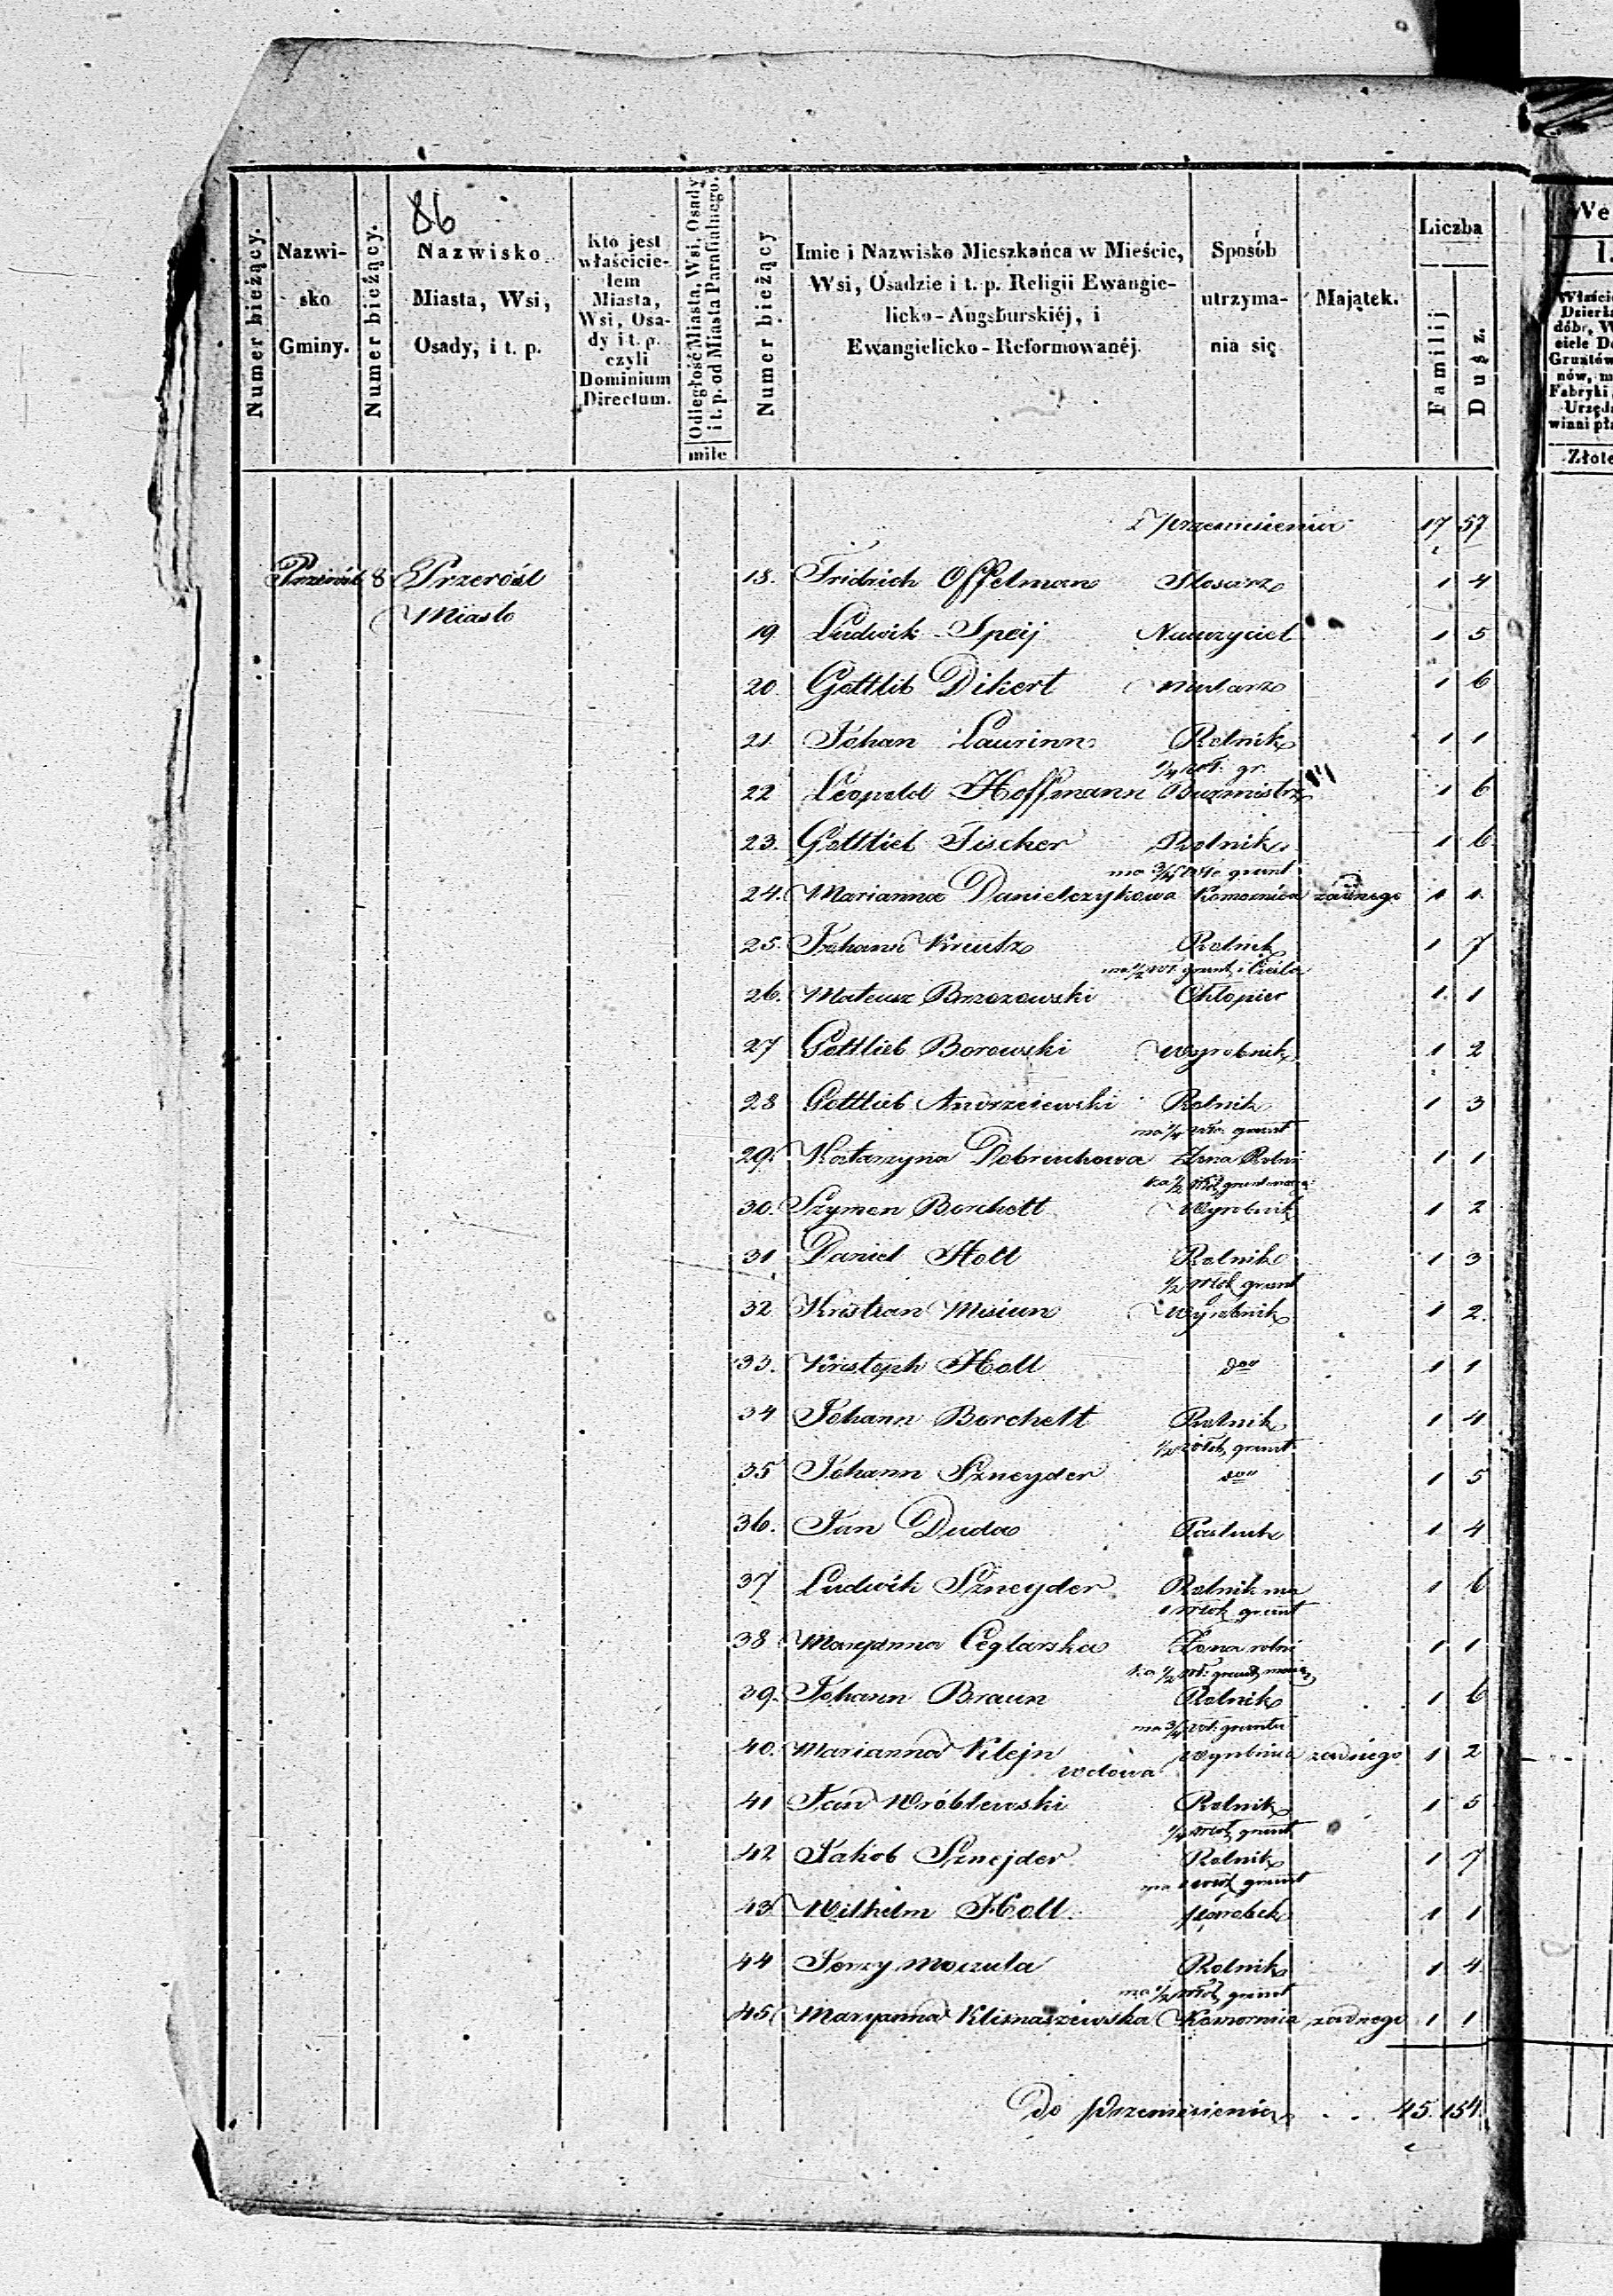 86
Numer bieżący.
Nazwi-
sko
Gminy.
Numer bieżący.
Nazwisko
Miasta, Wsi,
Osady, i t. p.
Kto jest
właścicie-
lem
Miasta,
Wsi, Osa-
dy i t. p.
czyli
Dominium
Directum.
Odległość Miasta, Wsi, Osady
i t. p. od Miasta Parafialnego.
mile
Numer bieżący
Imie i Nazwisko Mieszkańca w Mieście,
Wsi, Osadzie i t. p. Religii Ewangie-
licko-Augsburskiéj, i
Ewangielicko-Reformowanéj.
Sposób
utrzyma-
nia się
Majątek.
Liczba
Familij
Dusz.
Złote
Z przeniesienia 17 57
Przerośl 8 Przerośl 18. Fridrich Offelman Slosarz 1 4
Miasto
19 Ludwik Speij Nauczyciel 1 5
20 Gottlib Dikert 1 6
21 Johan Laurinn Rolnik 1 1
1/4 wł. gr.
22 Leopold Hoffmann Burmistrz 1 6
23. Gottlieb Fischer Rolnik 1 6
ma 3/4 włó grunt
24. Marianna Danielczykowa Komornica żadnego 1 1
25. Johann Kreutz Rolnik 1 7
ma 1/2 wł. grunt i Cieśla
26. Mateusz Brzozowski 1 1
27 Gottlieb Borowski Wyrobnik 1 2
28 Gottlieb Andrzeiewski Rolnik 1 3
ma 1/4 włó. grunt
29. Katarzyna Żona Rolni 1 1
ka 1/2 włók grunt
30. Szymon Borchett Wyrobnik 1 2
31 Daniel Holl Rolnik 1 3
1/2 włok grunt
32 Kristian Misiun Wyrobnik 1 2.
33. Kristoph Holl 1 1
34 Johann Borchett Rolnik 1 4
1/2 włók grunt
35 Johann Szneyder 1 5
36. Jan Duda Pastuch 1 4
37 Ludwik Szneyder Rolnik ma 1 6
1 włok grunt
38 Maryanna Ceglarska Żona rolni 1 1
ka 1/2 wł. grunt
39. Johann Braun Rolnik 1 6
ma 3/4 wł. gruntu
40. Marianna Klejn żadnego 1 2
wdowa
41 Jan Wróblewski Rolnik 1 5
1/4 włok grunt
42 Jakob Sznejder Rolnik 1 7
ma 1 włok grunt
43 Wilhelm Holl parobek 1 1
44 Jerzy Moczula Rolnik 1 4
ma 1/2 włok grunt
45 Maryanna Klimaszewska Komornica żadnego 1 1
Do przeniesienia . . . 45. 154.